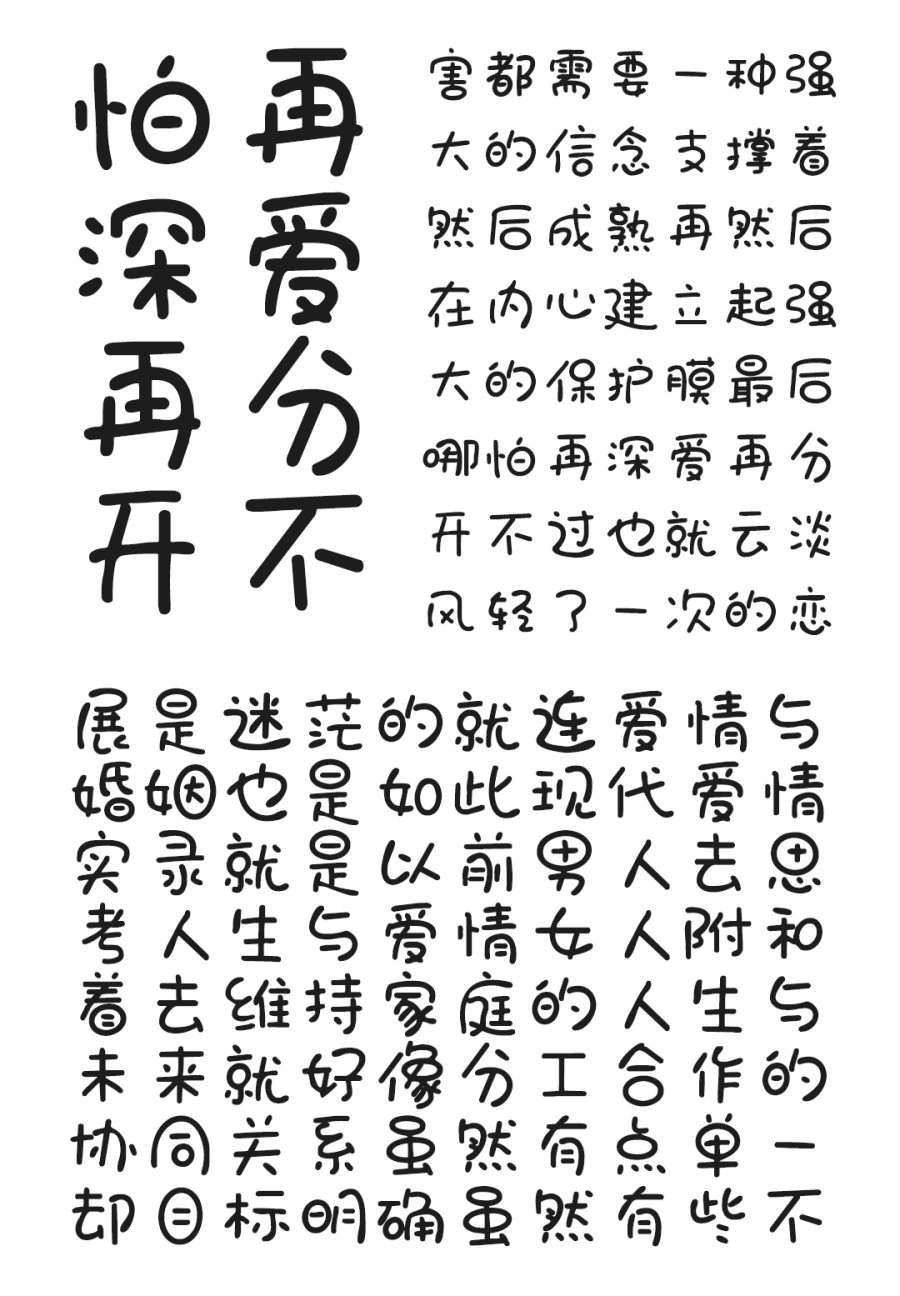 怕再
深爱
再分
开不
害都需要一种强
大的信念支撑着
然后成熟再然后
在内心建立起强
大的保护膜最后
哪怕再深爱再分
开不过也就云淡
风轻了一次的恋
展是迷茫的就连爱情与
婚姻也是如此现代爱情
实录就是以前男人去思
考人生与爱情女人附和
着去维持家庭的人生与
未来就好像分工合作的
协同关系虽然有点单一
却目标明确虽然有些不